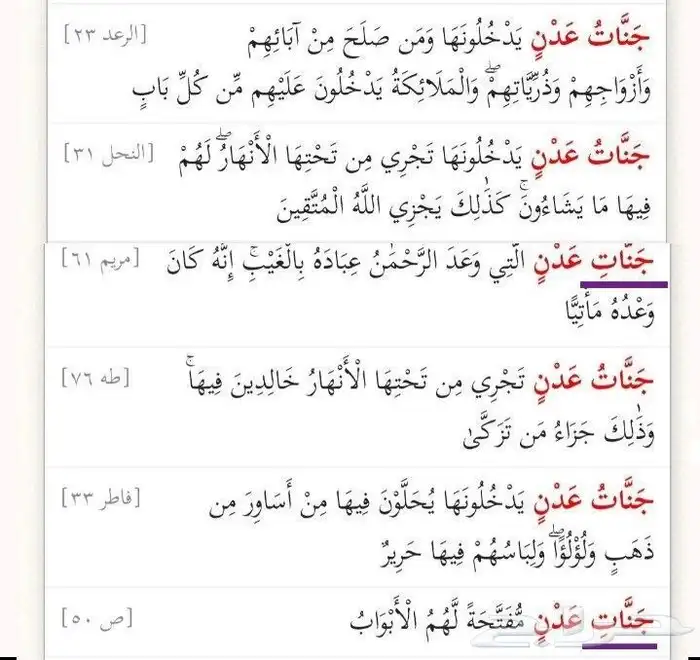 جَنَّاتُ عَدْنٍ يَدْخُلُونَهَا وَمَن صَلَحَ مِنْ آبَائِهِمْ [الرعد ٢٣]
وَأَزْوَاجِهِمْ وَذُرِّيَّاتِهِمْ ۖ وَالْمَلَائِكَةُ يَدْخُلُونَ عَلَيْهِم مِّن كُلِّ بَابٍ
جَنَّاتُ عَدْنٍ يَدْخُلُونَهَا تَجْرِي مِن تَحْتِهَا الْأَنْهَارُ ۖ لَهُمْ [النحل ٣١]
فِيهَا مَا يَشَاءُونَ ۚ كَذَٰلِكَ يَجْزِي اللَّهُ الْمُتَّقِينَ
جَنَّاتِ عَدْنٍ الَّتِي وَعَدَ الرَّحْمَٰنُ عِبَادَهُ بِالْغَيْبِ ۚ إِنَّهُ كَانَ [مريم ٦١]
وَعْدُهُ مَأْتِيًّا
جَنَّاتُ عَدْنٍ تَجْرِي مِن تَحْتِهَا الْأَنْهَارُ خَالِدِينَ فِيهَا ۚ [طه ٧٦]
وَذَٰلِكَ جَزَاءُ مَن تَزَكَّىٰ
جَنَّاتُ عَدْنٍ يَدْخُلُونَهَا يُحَلَّوْنَ فِيهَا مِنْ أَسَاوِرَ مِن [فاطر ٣٣]
ذَهَبٍ وَلُؤْلُؤًا ۖ وَلِبَاسُهُمْ فِيهَا حَرِيرٌ
جَنَّاتِ عَدْنٍ مُّفَتَّحَةً لَّهُمُ الْأَبْوَابُ [ص ٥٠]
حراج